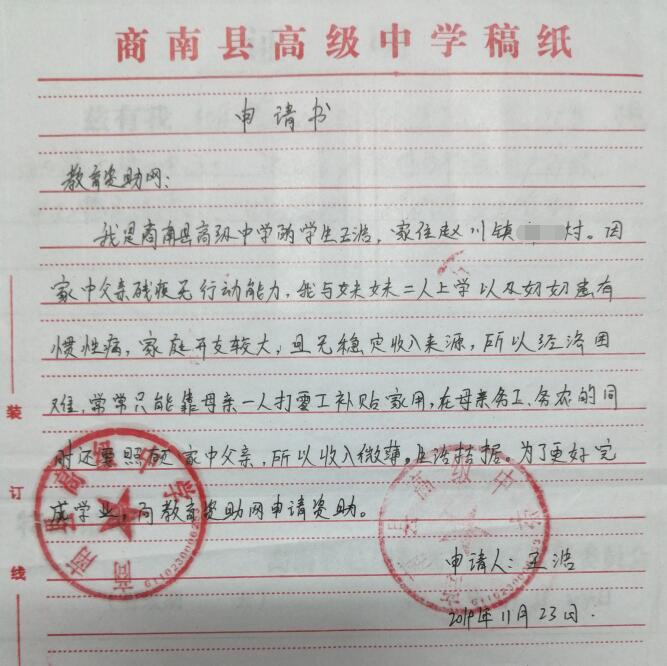 商南县高级中学稿纸
申请书
教育资助网：
我是商南县高级中学的学生王浩，家住赵川镇村。因
家中父亲残疾无行动能力，我与妹妹二人上学以及奶奶患有
惯性病，家庭开支较大，且无稳定收入来源，所以经济困
难，常常只能靠母亲一人打零工补贴家用，在母亲务工、务农的同
时还要照顾家中父亲，所以收入微薄。生活拮据。为了更好完
成学业，向教育资助网申请资助。
申请人：王浩
2019年11月23日.
装
订
线
商南县高级中学